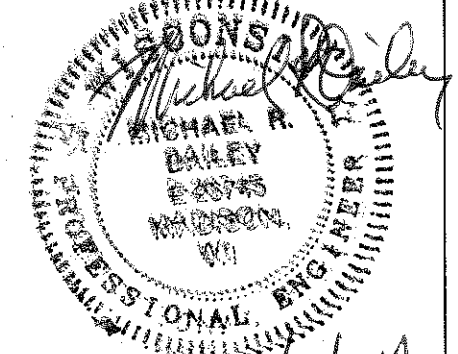 WISCONS
Michael R Bailey
MICHAEL R.
BAILEY
MADISON,
WI
PROFESSIONAL ENGINEER